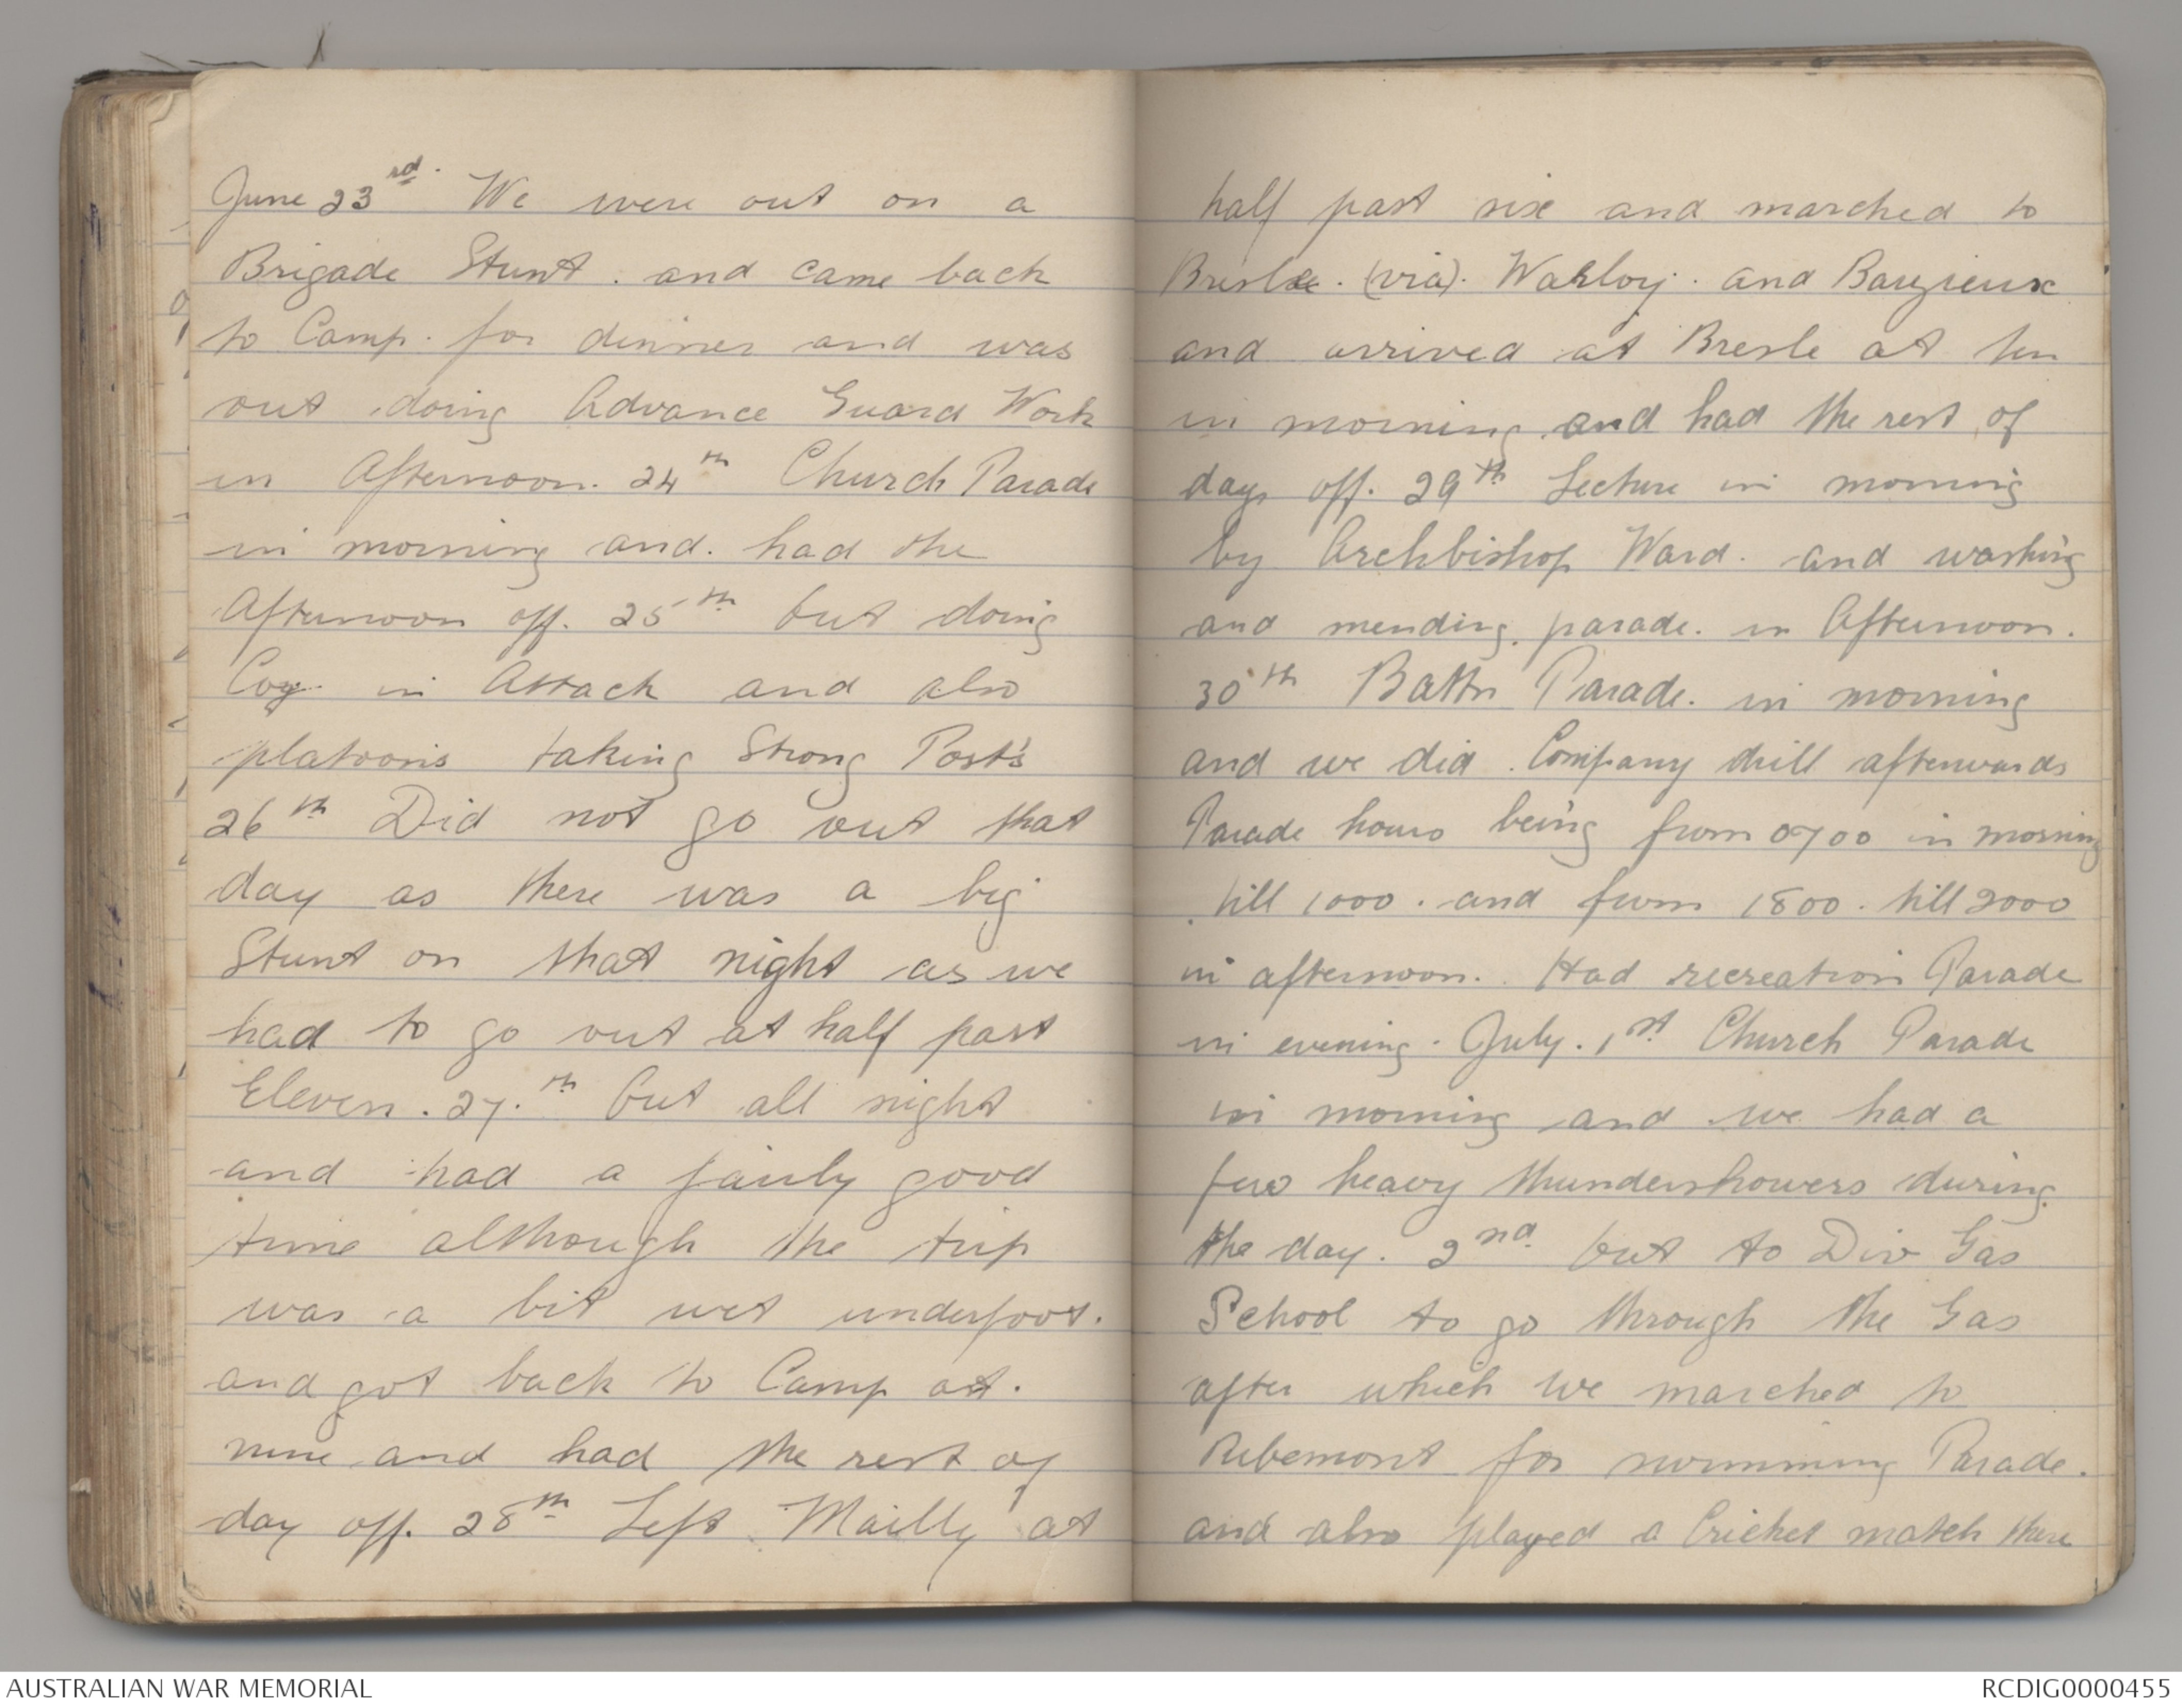 June 23rd. We were out on a
Brigade Stunt. and came back
to Camp. for dinner and was
out doing Advance Guard Work
in Afternoon. 24th Church Parade
in morning and. had the
Afternoon off. 25th Out doing
Coy in Attack and also
platoons taking Strong Post's
26th Did not go out that
day as there was a big
Stunt on that night as we
had to go out at half past
Eleven. 27.th Out all night
and had a fairly good
time although the trip
was a bit wet underfoot.
and got back to Camp at.
nine and had the rest of
day off. 28th Left Mailly at
half past six and marched to
Bresle. (via). Warloy. and Bazieux
and arrived at Bresle at ten
in morning and had the rest of
day off. 29th Lecture in morning
by Archbishop Ward. and washing
and mending parade. in Afternoon.
30th Battn Parade. in morning
and we did Company drill afterwards
Parade hours being from 0700 in morning
till 1000. and from 1800. till 2000
in afternoon. Had recreation Parade
in evening. July. 1st Church Parade
in morning and we had a
few heavy thundershowers during
the day. 2nd Out to Div Gas
School to go through the Gas
after which we marched to
Ribemont for swimming Parade.
and also played a Cricket match there
AUSTRALIAN WAR MEMORIAL
RCDIG0000455